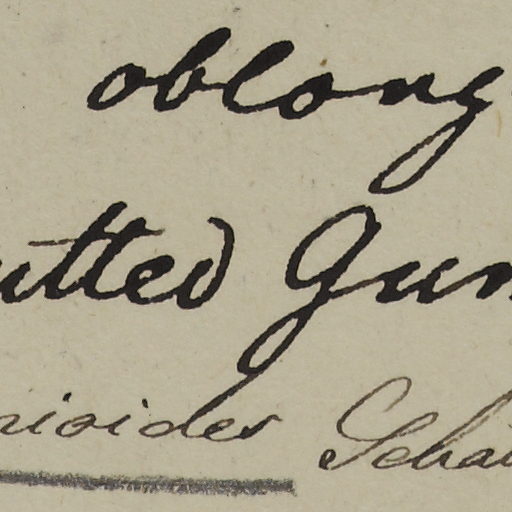 oblong
utted Gum
rioides Schau